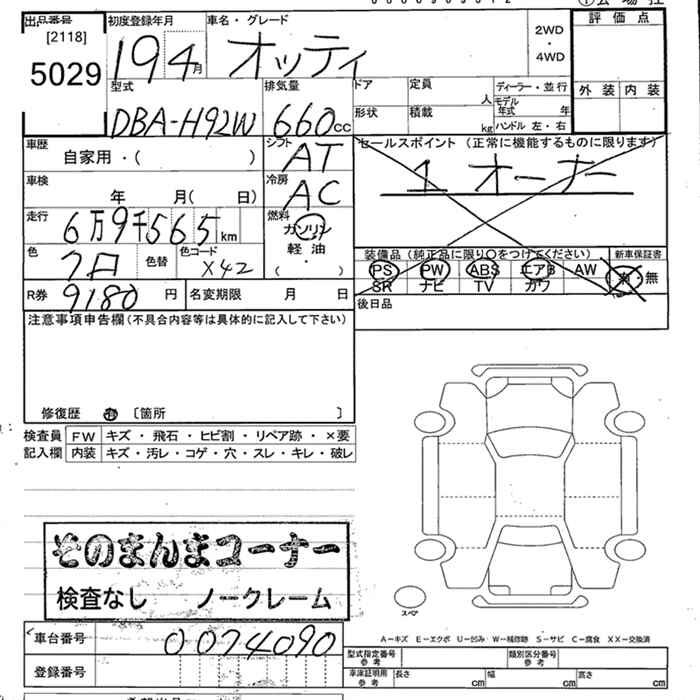 出品番号
[2118]
5029
初度登録年月
19 4月
車名・グレード
オッティ
2WD
・
4WD
評価点
外装 内装
型式
DBA-H92W
排気量
660cc
ドア
定員
人
形状
積載
kg
ディーラー・並行
モデル年式 年
ハンドル 左・右
車歴
自家用・( )
シフト
AT
車検
年 月( 日)
冷房
AC
走行
6万9千565km
燃料
ガソリン
軽油
( ・ )
色
クロ
色替
色コード
X42
R券
9180円
名変期限 月 日
セールスポイント (正常に機能するものに限ります)
1オーナー
装備品(純正品に限り○をつけてください)
新車保証書
PS PW ABS エアB AW
SR ナビ TV カワ
有・無
後日品
注意事項申告欄(不具合内容等は具体的に記入して下さい)
修復歴 有 〔箇所 〕
検査員 FW キズ・飛石・ヒビ割・リペア跡・×要
記入欄 内装 キズ・汚レ・コゲ・穴・スレ・キレ・破レ
そのまんまコーナー
検査なし ノークレーム
スペア
A－キズ E－エクボ U－凹み W－補修跡 S－サビ C－腐食 XX－交換済
車台番号
0074090
登録番号
型式指定番号 参考
類別区分番号 参考
車庫証明用 参考
長さ cm 幅 cm 高さ cm